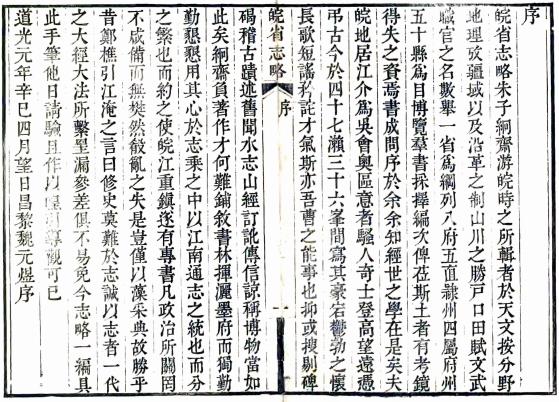 序
皖省志略朱子絅齋游皖時之所輯者於天文按分野
地理攷疆域以及沿革之制山川之勝戶口田賦文武
職官之名數舉一省爲綱列八府五直隷州四屬府州
五十縣爲目博覽羣書採擇編次俾莅斯土者有考鏡
得失之資焉書成問序於余余知經世之學在是矣夫
皖地居江介爲吳會奧區意者騷人奇士登高望遠憑
弔古今於四十七瀨三十六峯間寫其豪宕鬱勃之懷
長歌短謠矜詫才氣斯亦吾曹之能事也抑或搜剔碑
皖省志略
序
碣稽古蹟述舊聞水志山經訂訛傳信諒稱博物當如
此矣絅齋負著作才何難鋪敘書林揮灑墨府而獨勤
勤懇懇用其心於志乘之中以江南通志之統也而分
之繁也而約之使皖江重鎮遂有專書凡政治所關罔
不咸備而無樊然殽亂之失是豈僅以藻采典故勝乎
昔鄭樵引江淹之言曰修史莫難於志誠以志者一代
之大經大法所繫罣漏參差俱不易免今志略一編具
此手筆他日請驗且作以引導觀可已
道光元年辛巳四月望日昌黎魏元煜序